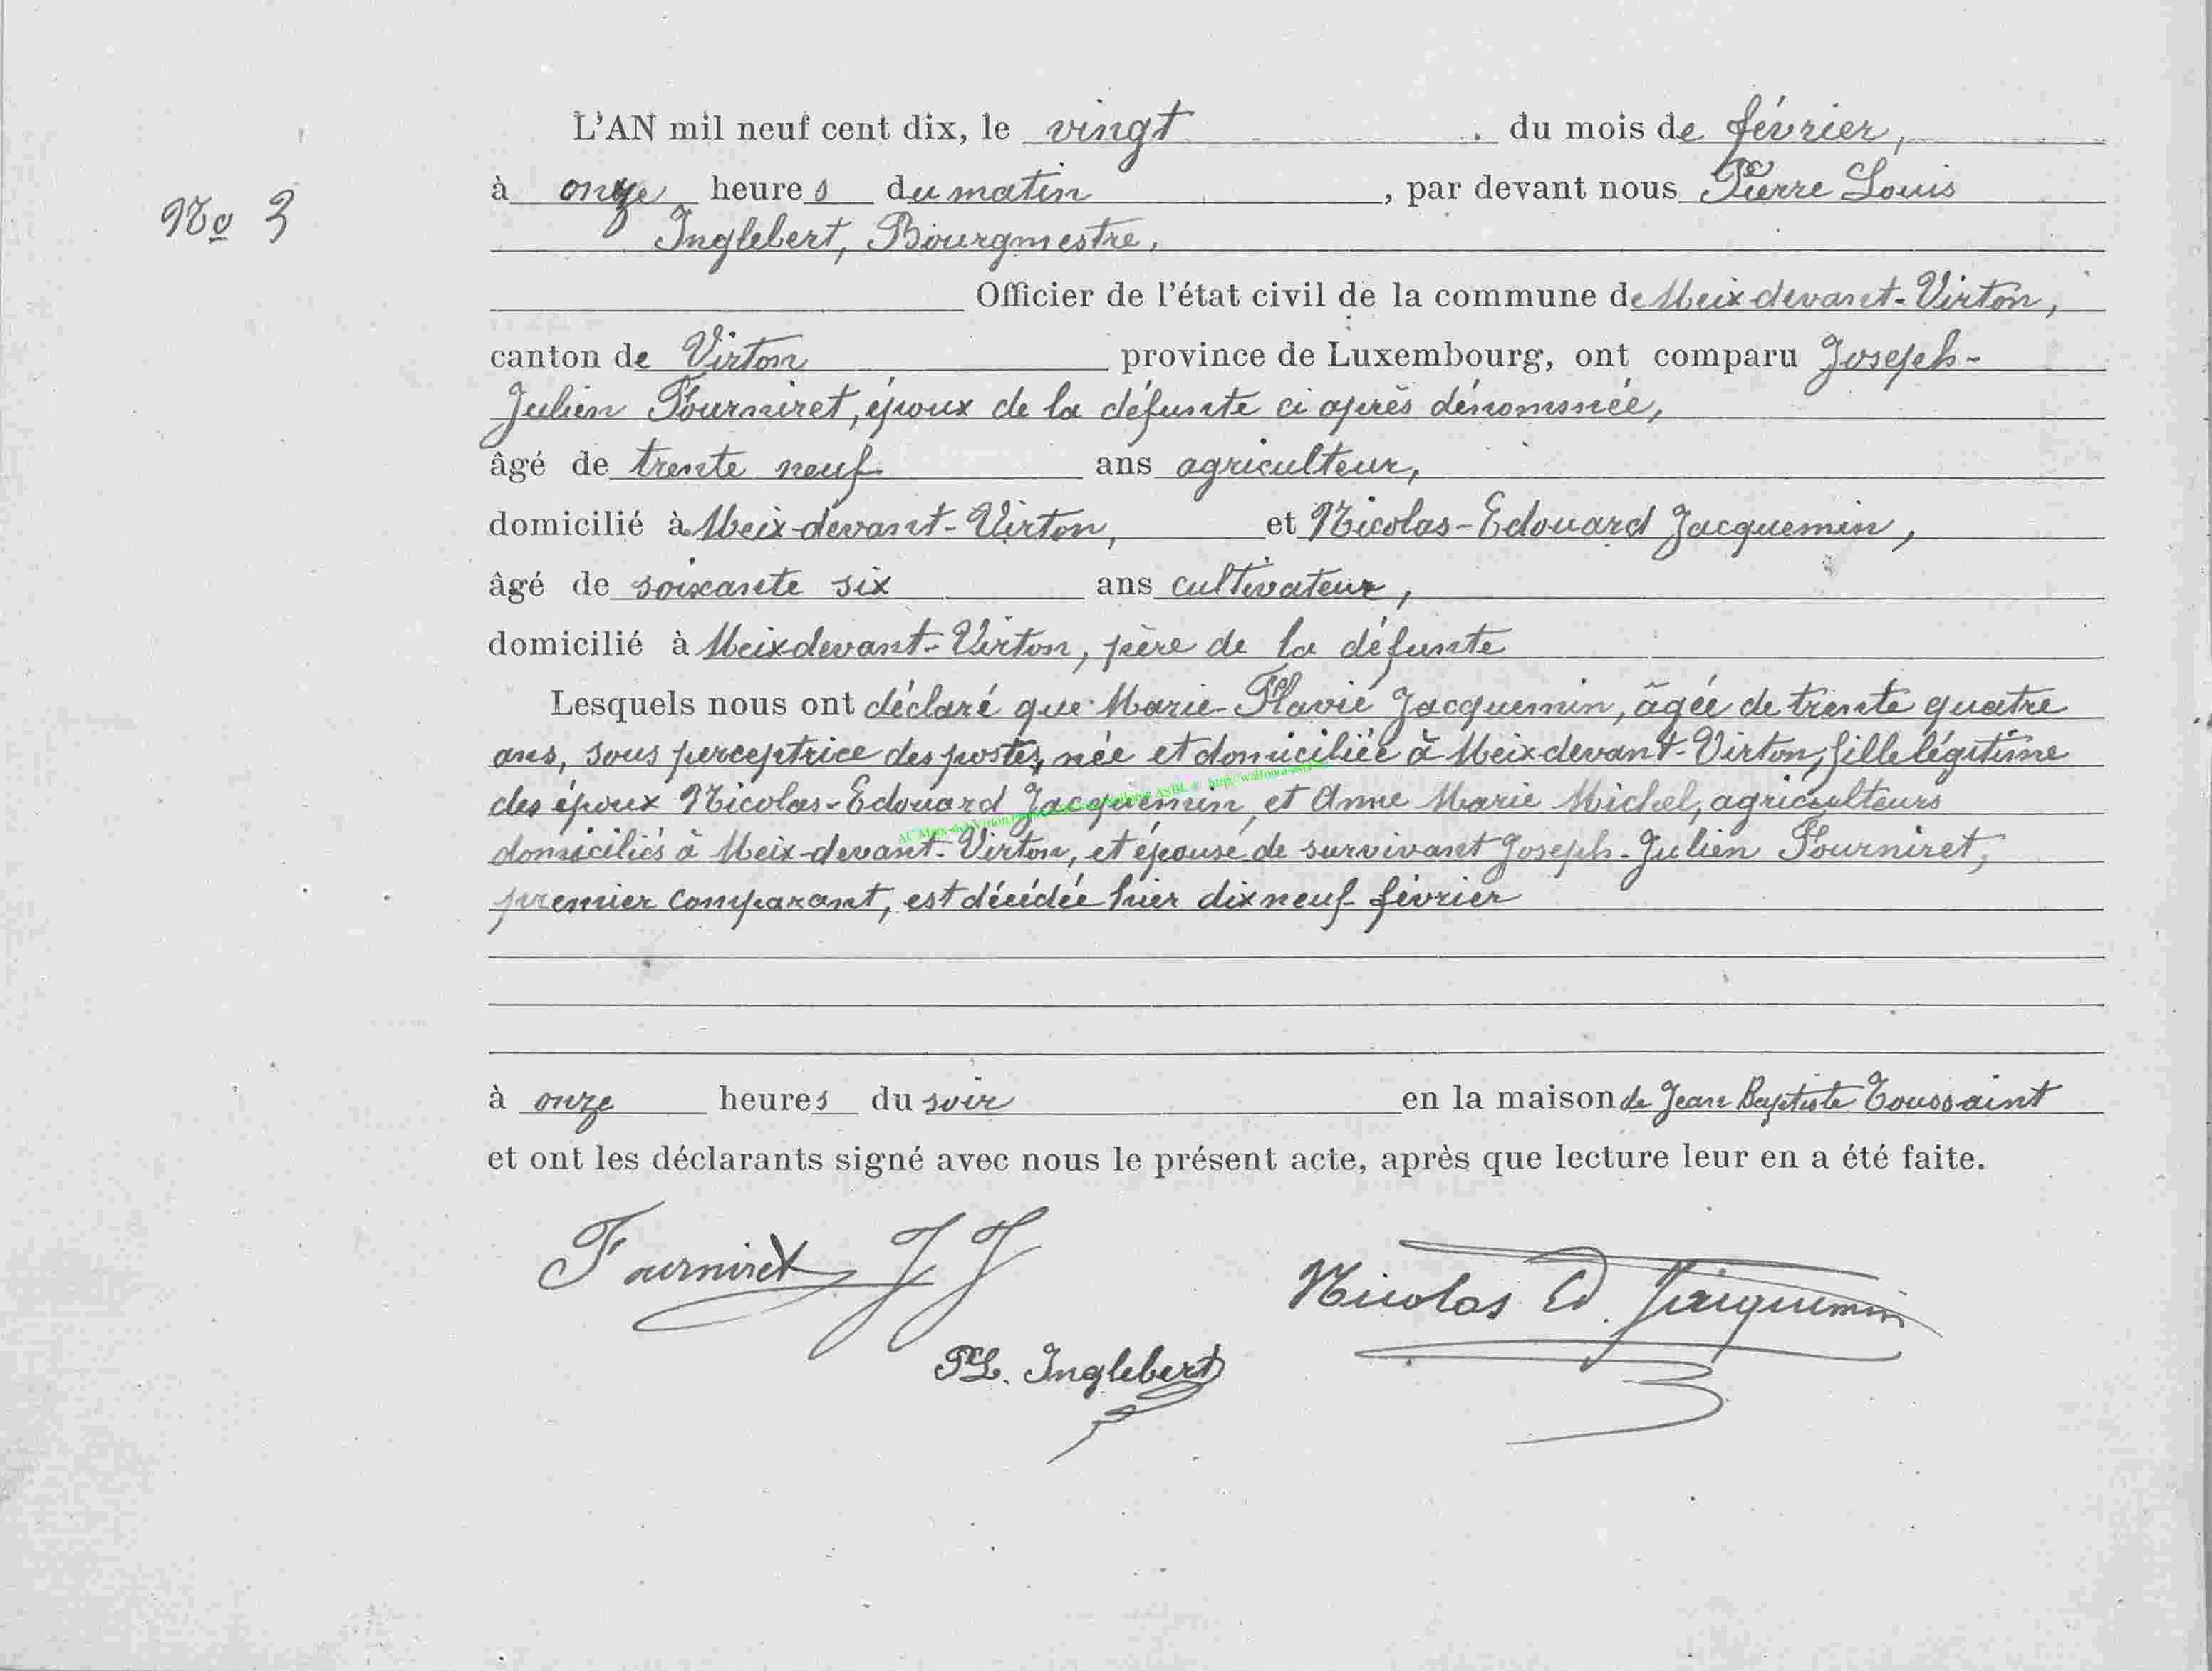 L'AN mil neuf cent dix, le vingt du mois de février,
No 3
à onze heures du matin, par devant nous Pierre Louis
Inglebert, Bourgmestre,
Officier de l'état civil de la commune de Meix devant-Virton,
canton de Virton province de Luxembourg, ont comparu Joseph-
Julien Fourniret, époux de la défunte ci après dénommée,
âgé de trente neuf ans agriculteur,
domicilié à Meix-devant-Virton, et Nicolas-Edouard Jacquemin,
âgé de soixante six ans cultivateur,
domicilié à Meix devant-Virton, père de la défunte
Lesquels nous ont déclaré que Marie-Flavie Jacquemin, âgée de trente quatre
ans, sous perceptrice des postes, née et domiciliée à Meix devant-Virton, fille légitime
des époux Nicolas-Edouard Jacquemin et Anne Marie Michel, agriculteurs
domiciliés à Meix-devant-Virton, et épouse de survivant Joseph-Julien Fourniret,
premier comparant, est décédée hier dix neuf février
à onze heures du soir en la maison de Jean Baptiste Toussaint
et ont les déclarants signé avec nous le présent acte, après que lecture leur en a été faite.
Fourniret J J
Nicolas Ed. Jacquemin
PL. Inglebert